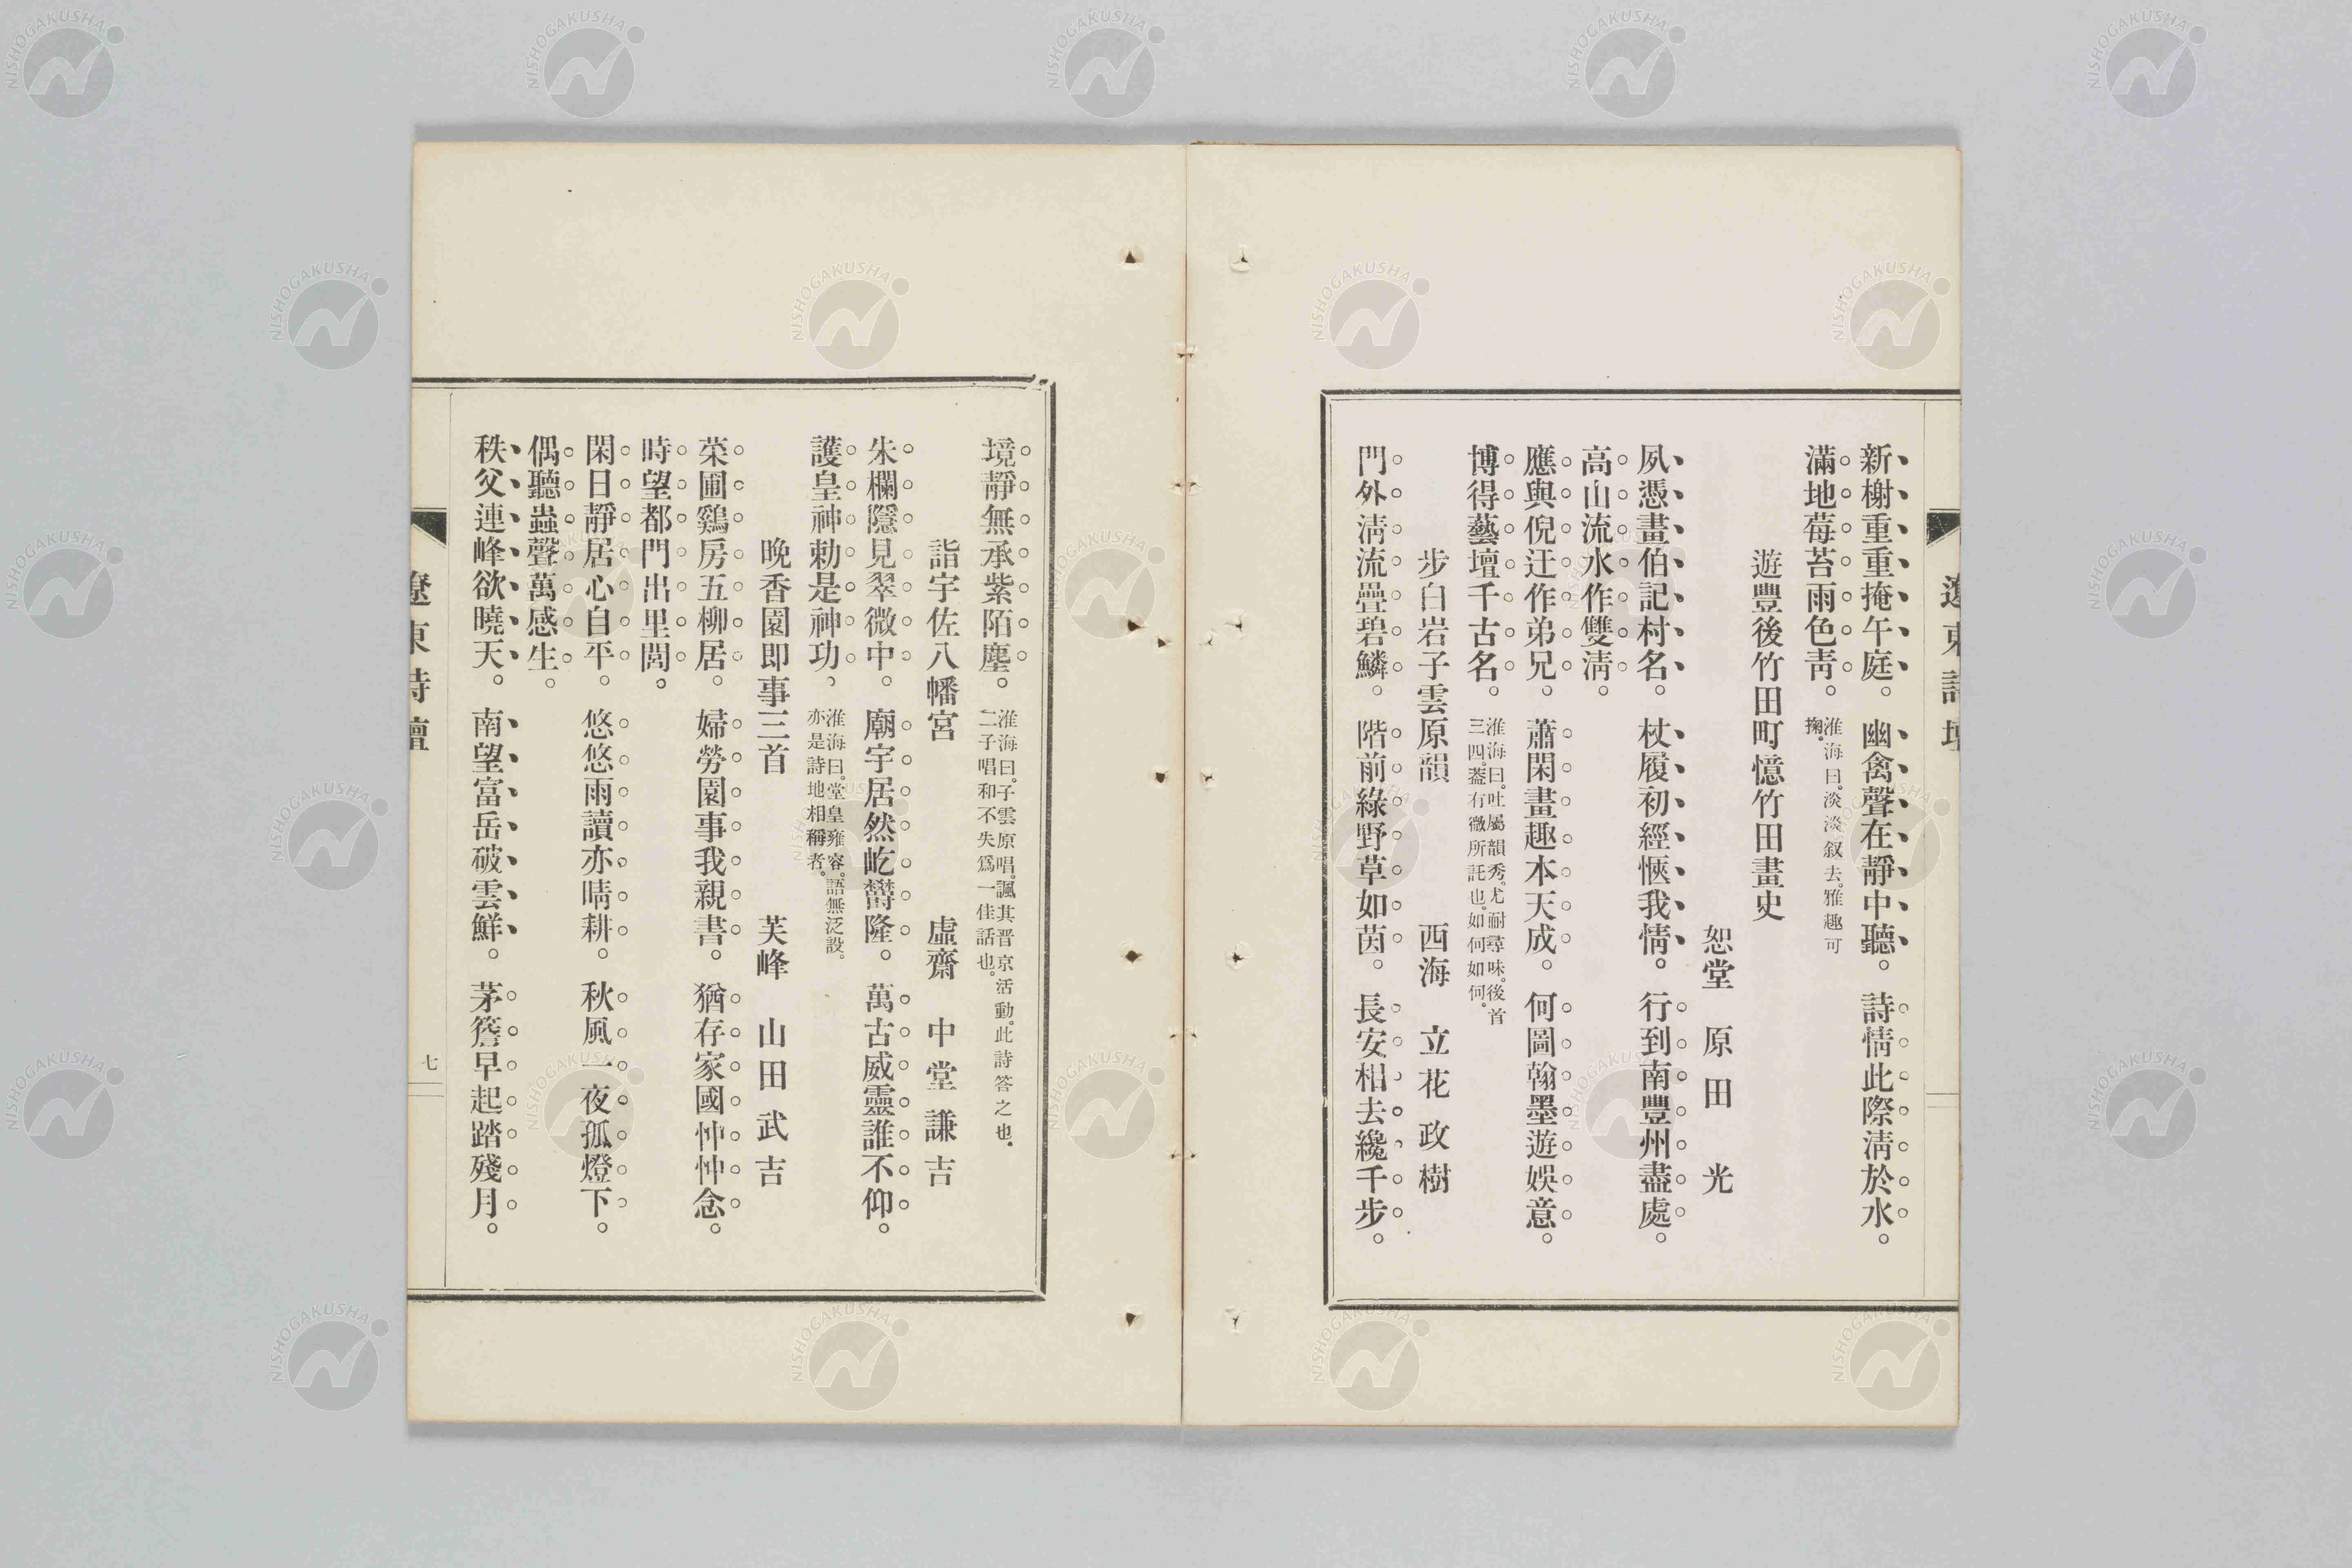 遼東詩壇
新榭重重掩午庭。幽禽聲在靜中聽。詩情此際淸於水。
滿地莓苔雨色靑。
淮海曰。淡淡叙去。雅趣可
掬。
遊豐後竹田町憶竹田畫史
恕堂 原田 光
夙憑畫伯記村名。杖履初經愜我情。行到南豐州盡處。
高山流水作雙淸。
應與倪迂作弟兄。蕭閑畫趣本天成。何圖翰墨遊娛意。
博得藝壇千古名。
淮海曰。吐屬韻秀。尤耐尋味。後首
三四。蓋有微所託也。如何如何。
步白岩子雲原韻 西海 立花政樹
門外淸流疊碧鱗。階前綠野草如茵。長安相去纔千步。
境靜無承紫陌塵。
淮海曰。子雲原唱。諷其晋京活動。此詩答之也。
二子唱和不失爲一佳話也。
詣宇佐八幡宮 虛齋 中堂謙吉
朱欄隱見翠微中。廟宇居然屹欝隆。萬古威靈誰不仰。
護皇神勅是神功、
淮海曰。堂皇雍容。語無泛設。
亦是詩地相稱者。
晩香園即事三首 芙峰 山田武吉
菜圃鷄房五柳居。婦勞園事我親書。猶存家國忡忡念。
時望都門出里閭。
閑日靜居心自平。悠悠雨讀亦晴耕。秋風一夜孤燈下。
偶聽蟲聲萬感生。
秩父連峰欲曉天。南望富岳破雲鮮。茅簷早起踏殘月。
遼東詩壇
七